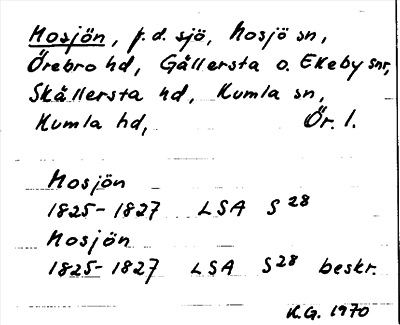 Mosjön, f.d. sjö, Mosjö sn,
Örebro hd, Gällersta o. Ekeby snr,
Skällersta hd, Kumla sn,
Kumla hd, Ör. l.
Mosjön
1825-1827 LSA S 28
Mosjön
1825-1827 LSA S 28 beskr.
K.G. 1970